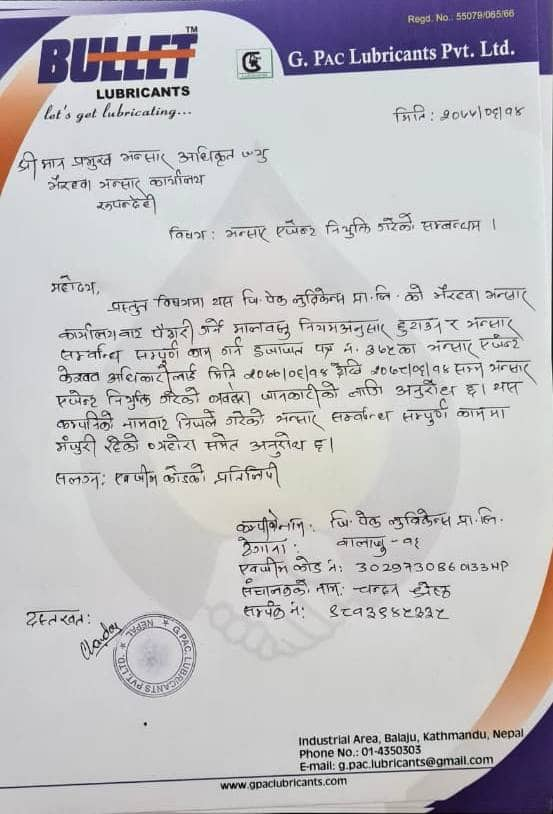 Regd. No.: 55079/065/66
BULLET TM
LUBRICANTS
let's get lubricating...
G. PAC Lubricants Pvt. Ltd.
मिति: २०७७/०६/१४
श्री मान प्रमुख भन्सार अधिकृत ज्यु
भैरहवा भन्सार कार्यालय
रुपन्देही
विषय: भन्सार एजेन्ट नियुक्ति गरेको सम्बन्धमा ।
महोदय,
प्रस्तुत विषयमा यस जि. पेक लुव्रिकेन्स प्रा. लि. को भैरहवा भन्सार
कार्यालयबाट पैठारी गर्ने मालवस्तु नियमअनुसार छुटाउन र भन्सार
सम्बन्धि सम्पूर्ण काम गर्न इजाजत पत्र नं. ३७८का भन्सार एजेन्ट
केशव अधिकारीलाई मिति २०७७/०६/१४ देखि २०७८/०६/१४ सम्म भन्सार
एजेन्ट नियुक्ति गरेको व्यहोरा जानकारीको लागि अनुरोध छ। यस
कम्पनिको नामबाट निजले गरेको भन्सार सम्बन्धि सम्पूर्ण काममा
मंजुरी रहेको व्यहोरा समेत अनुरोध छ।
संलग्न: एक्जीम कोडको प्रतिलिपी
कम्पनीको नाम: जि. पेक लुव्रिकेन्स प्रा. लि.
ठेगाना: बालाजु - १६
एक्जीम कोड नं: 3029730860133NP
संचालकको नाम: चन्दन श्रेष्ठ
सम्पर्क नं:
दस्तखत:
G. PAC. LUBRICANTS PVT. LTD. NEPAL
Industrial Area, Balaju, Kathmandu, Nepal
Phone No.: 01-4350303
E-mail: g.pac.lubricants@gmail.com
www.gpaclubricants.com